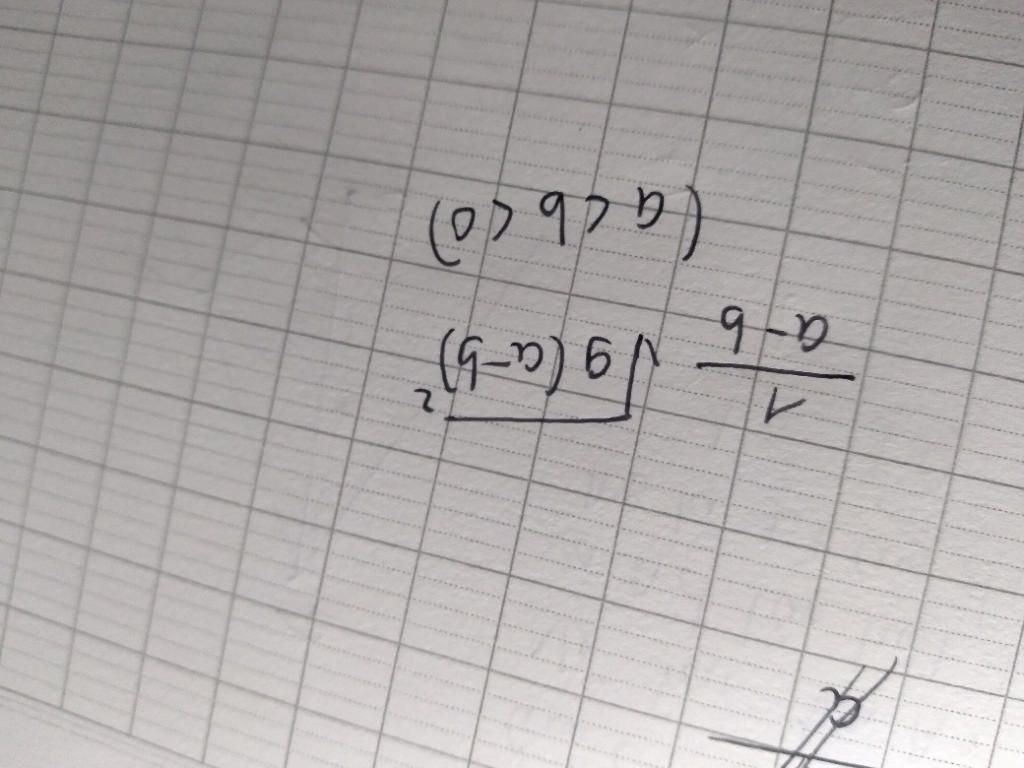 1/(a-b) √9(a-b)²
(a<b<0)